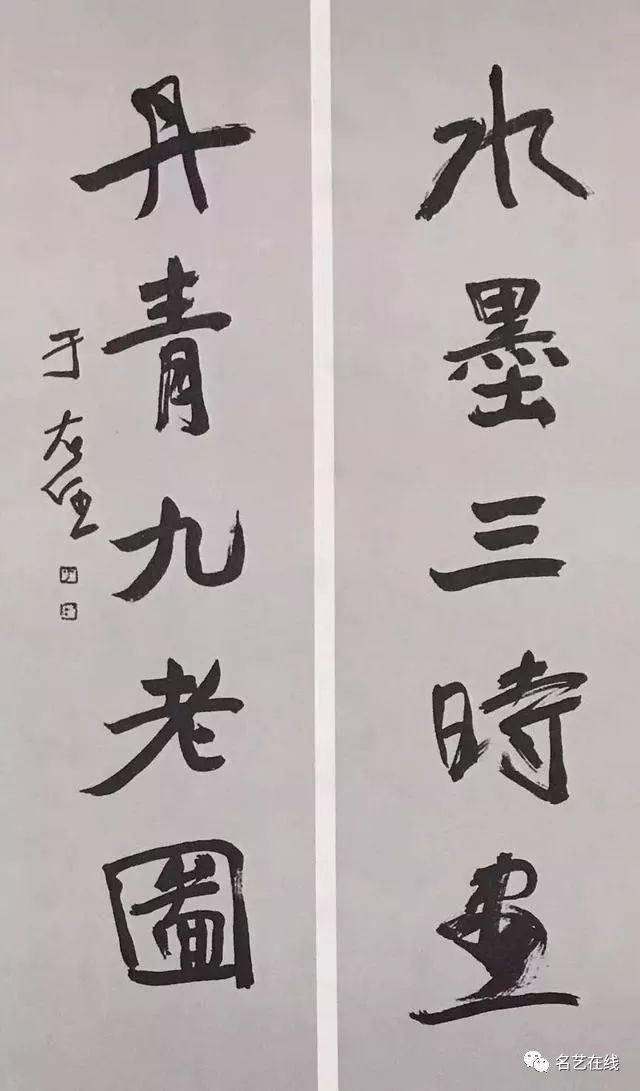 水墨三時畫
丹青九老圖
于右任
名艺在线